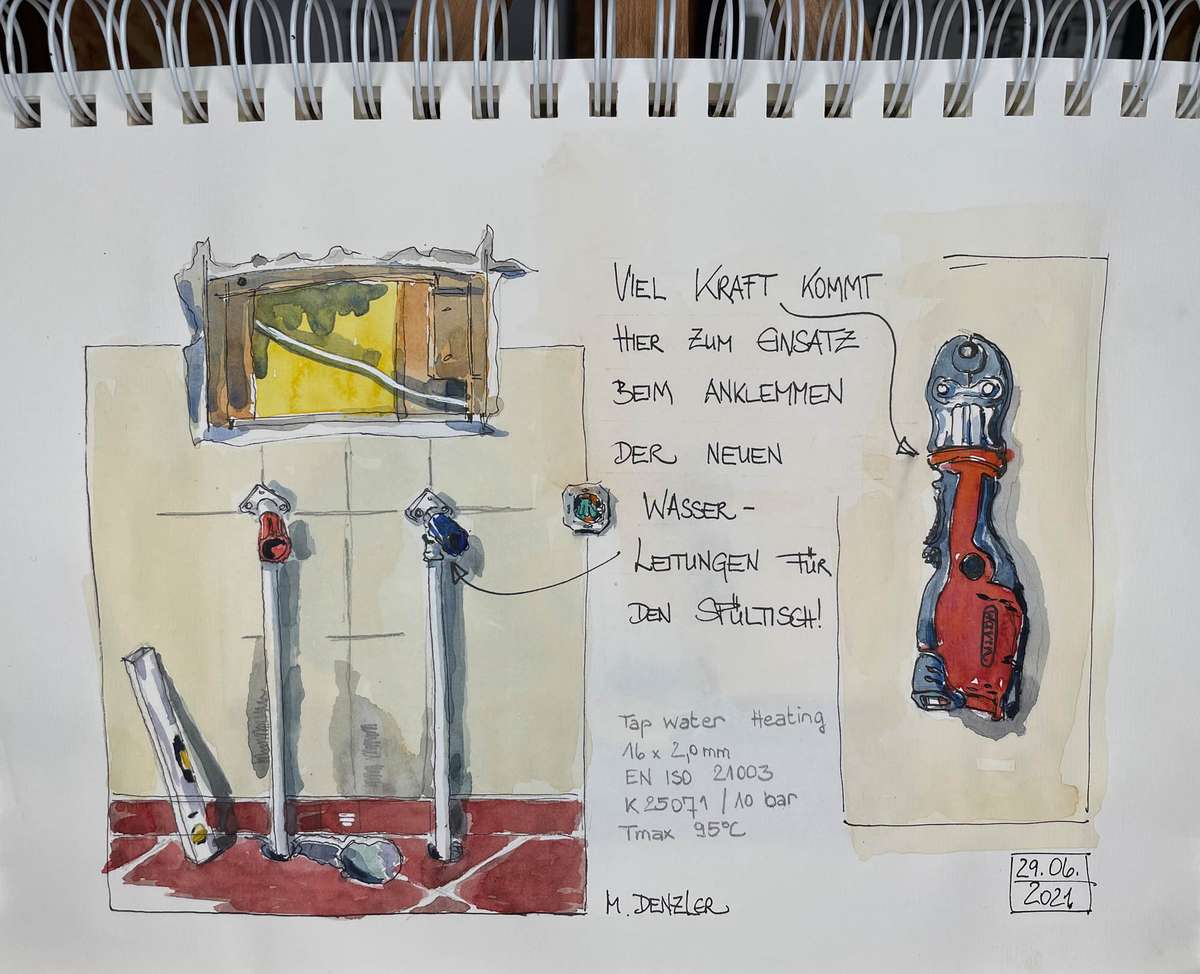 VIEL KRAFT KOMMT
HIER ZUM EINSATZ
BEIM ANKLEMMEN
DER NEUEN
WASSER-
LEITUNGEN FÜR
DEN SPÜLTISCH!
Tap water Heating
16 x 2,0 mm
EN ISO 21003
K 25071 / 10 bar
Tmax 95°C
M. DENZLER
29.06.
2021